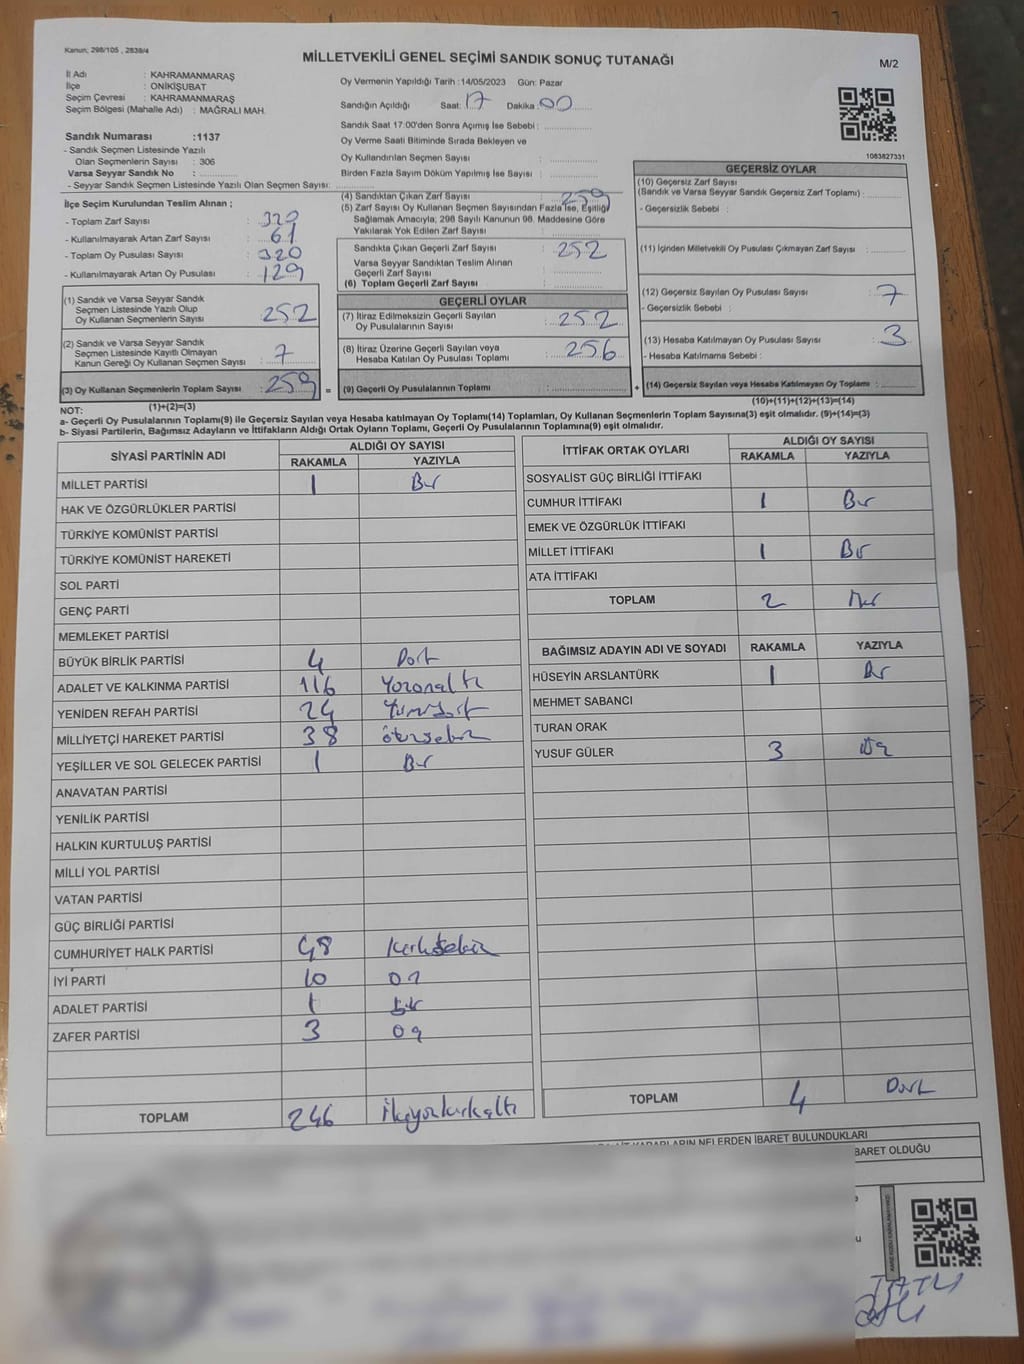 Kanun; 298/105 , 2839/4
MİLLETVEKİLİ GENEL SEÇİMİ SANDIK SONUÇ TUTANAĞI
M/2
İl Adı : KAHRAMANMARAŞ
İlçe : ONİKİŞUBAT
Seçim Çevresi : KAHRAMANMARAŞ
Seçim Bölgesi (Mahalle Adı) : MAĞRALI MAH.
Sandık Numarası :1137
- Sandık Seçmen Listesinde Yazılı
Olan Seçmenlerin Sayısı : 306
Varsa Seyyar Sandık No :
- Seyyar Sandık Seçmen Listesinde Yazılı Olan Seçmen Sayısı:
Oy Vermenin Yapıldığı Tarih :14/05/2023 Gün: Pazar
Sandığın Açıldığı Saat: 17 Dakika: 00
Sandık Saat 17:00'den Sonra Açımış İse Sebebi :
Oy Verme Saati Bitiminde Sırada Bekleyen ve
Oy Kullandırılan Seçmen Sayısı :
Birden Fazla Sayım Döküm Yapılmış İse Sayısı :
1083827331
İlçe Seçim Kurulundan Teslim Alınan ;
- Toplam Zarf Sayısı : 320
- Kullanılmayarak Artan Zarf Sayısı : 61
- Toplam Oy Pusulası Sayısı : 320
- Kullanılmayarak Artan Oy Pusulası : 129
(1) Sandık ve Varsa Seyyar Sandık
Seçmen Listesinde Yazılı Olup
Oy Kullanan Seçmenlerin Sayısı : 252
(2) Sandık ve Varsa Seyyar Sandık
Seçmen Listesinde Kayıtlı Olmayan
Kanun Gereği Oy Kullanan Seçmen Sayısı : 7
(3) Oy Kullanan Seçmenlerin Toplam Sayısı : 259
(4) Sandıktan Çıkan Zarf Sayısı : 259
(5) Zarf Sayısı Oy Kullanan Seçmen Sayısından Fazla İse, Eşitliği
Sağlamak Amacıyla; 298 Sayılı Kanunun 98. Maddesine Göre
Yakılarak Yok Edilen Zarf Sayısı :
Sandıkta Çıkan Geçerli Zarf Sayısı : 252
Varsa Seyyar Sandıktan Teslim Alınan
Geçerli Zarf Sayısı :
(6) Toplam Geçerli Zarf Sayısı :
GEÇERLİ OYLAR
(7) İtiraz Edilmeksizin Geçerli Sayılan
Oy Pusulalarının Sayısı : 252
(8) İtiraz Üzerine Geçerli Sayılan veya
Hesaba Katılan Oy Pusulası Toplamı : 256
= (9) Geçerli Oy Pusulalarının Toplamı :
GEÇERSİZ OYLAR
(10) Geçersiz Zarf Sayısı
(Sandık ve Varsa Seyyar Sandık Geçersiz Zarf Toplamı) :
- Geçersizlik Sebebi :
(11) İçinden Milletvekili Oy Pusulası Çıkmayan Zarf Sayısı :
(12) Geçersiz Sayılan Oy Pusulası Sayısı : 7
- Geçersizlik Sebebi :
(13) Hesaba Katılmayan Oy Pusulası Sayısı : 3
- Hesaba Katılmama Sebebi :
+ (14) Geçersiz Sayılan veya Hesaba Katılmayan Oy Toplamı :
NOT: (1)+(2)=(3)
(10)+(11)+(12)+(13)=(14)
a- Geçerli Oy Pusulalarının Toplamı(9) ile Geçersiz Sayılan veya Hesaba katılmayan Oy Toplamı(14) Toplamları, Oy Kullanan Seçmenlerin Toplam Sayısına(3) eşit olmalıdır. (9)+(14)=(3)
b- Siyasi Partilerin, Bağımsız Adayların ve İttifakların Aldığı Ortak Oyların Toplamı, Geçerli Oy Pusulalarının Toplamına(9) eşit olmalıdır.
SİYASİ PARTİNİN ADI
ALDIĞI OY SAYISI
RAKAMLA YAZIYLA
MİLLET PARTİSİ 1 Bir
HAK VE ÖZGÜRLÜKLER PARTİSİ
TÜRKİYE KOMÜNİST PARTİSİ
TÜRKİYE KOMÜNİST HAREKETİ
SOL PARTİ
GENÇ PARTİ
MEMLEKET PARTİSİ
BÜYÜK BİRLİK PARTİSİ 4 Dört
ADALET VE KALKINMA PARTİSİ 116 Yüzonaltı
YENİDEN REFAH PARTİSİ 24 Yirmidört
MİLLİYETÇİ HAREKET PARTİSİ 38 Otuzsekiz
YEŞİLLER VE SOL GELECEK PARTİSİ 1 Bir
ANAVATAN PARTİSİ
YENİLİK PARTİSİ
HALKIN KURTULUŞ PARTİSİ
MİLLİ YOL PARTİSİ
VATAN PARTİSİ
GÜÇ BİRLİĞİ PARTİSİ
CUMHURİYET HALK PARTİSİ 48 Kırksekiz
İYİ PARTİ 10 On
ADALET PARTİSİ 1 Bir
ZAFER PARTİSİ 3 Üç
TOPLAM 246 İkiyüzkırkaltı
İTTİFAK ORTAK OYLARI
ALDIĞI OY SAYISI
RAKAMLA YAZIYLA
SOSYALİST GÜÇ BİRLİĞİ İTTİFAKI
CUMHUR İTTİFAKI 1 Bir
EMEK VE ÖZGÜRLÜK İTTİFAKI
MİLLET İTTİFAKI 1 Bir
ATA İTTİFAKI
TOPLAM 2
BAĞIMSIZ ADAYIN ADI VE SOYADI RAKAMLA YAZIYLA
HÜSEYİN ARSLANTÜRK 1 Bir
MEHMET SABANCI
TURAN ORAK
YUSUF GÜLER 3 Üç
TOPLAM 4 Dört
KARARLARIN NELERDEN İBARET BULUNDUKLARI
BARET OLDUĞU